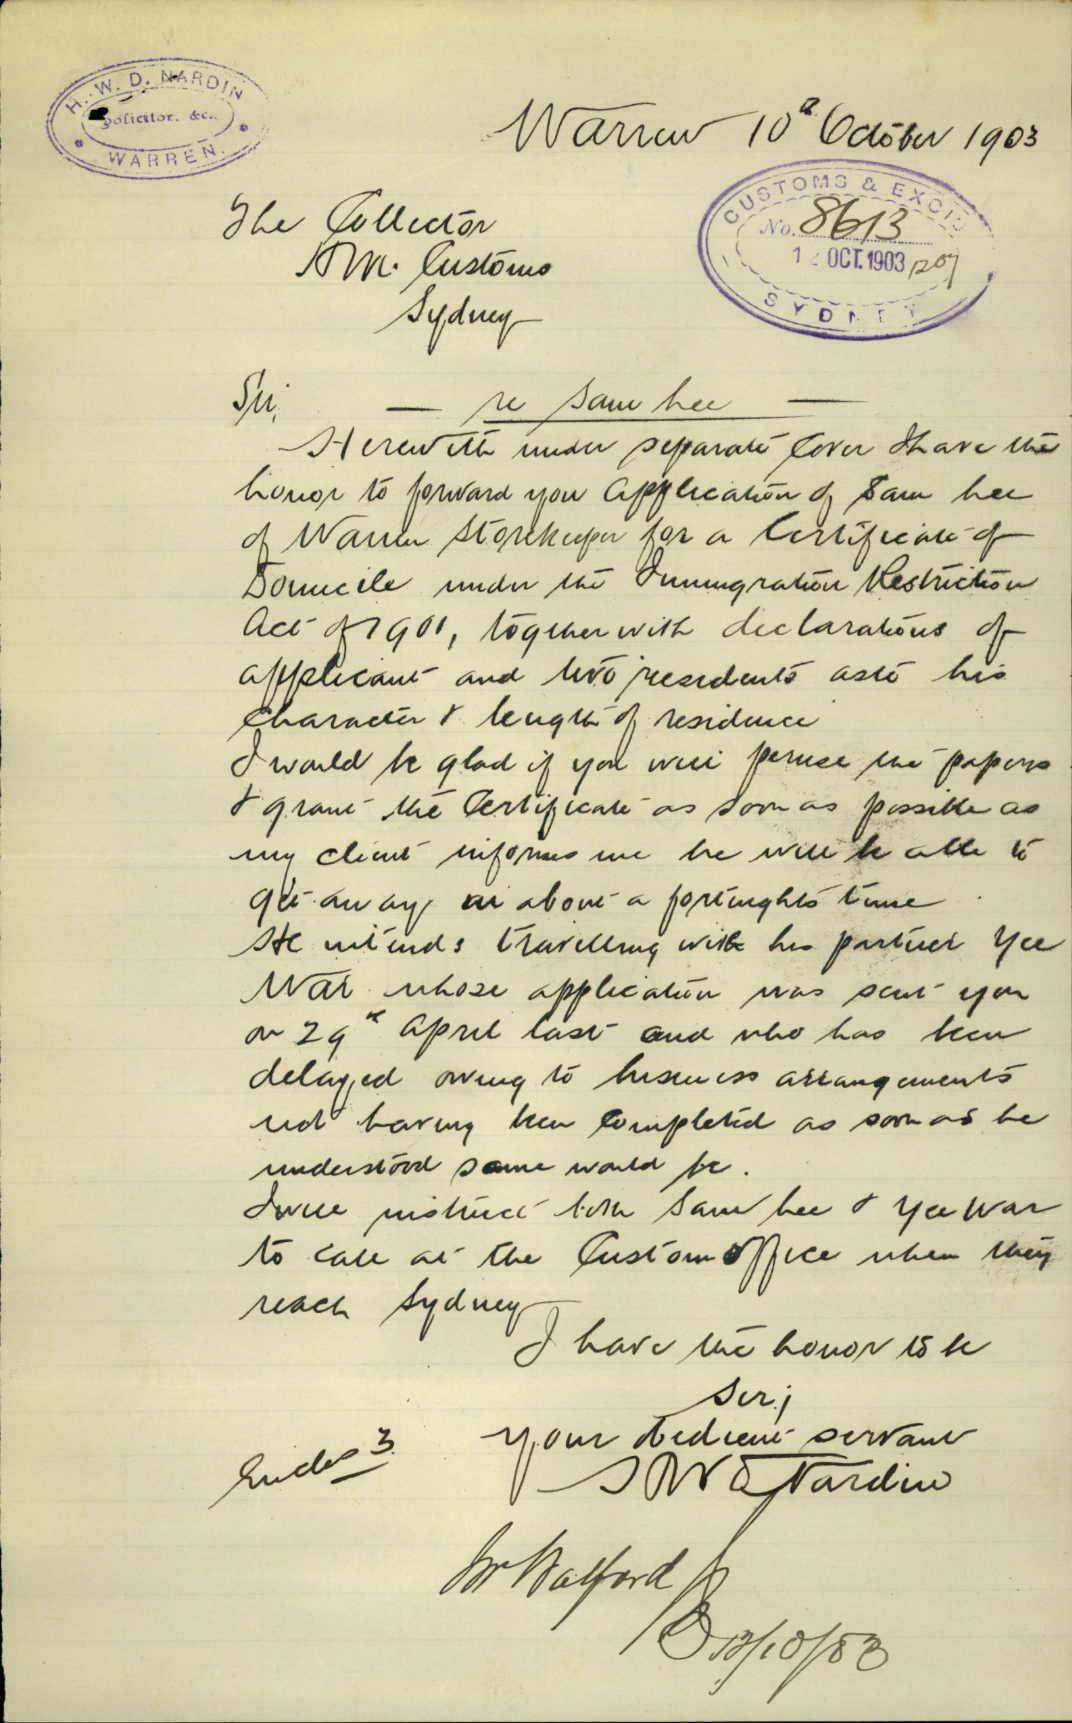 H. W. D. NARDIN
Solicitor. &c.
WARREN.
Warren 10th October 1903
CUSTOMS & EXCISE
No. 8613
12 OCT. 1903
SYDNEY
The Collector
H M. Customs
Sydney
Sir,
— re Sam Lee —
Herewith under separate Cover I have the
honor to forward you Application of Sam Lee
of Warren Storekeeper for a Certificate of
Domicile under the Immigration Restriction
Act of 1901, together with declarations of
applicant and two residents as to his
Character & length of residence
I would be glad if you will peruse the papers
& grant the Certificate as soon as possible as
my client informs me he will be able to
get away in about a fortnights time
He intends travelling with his partner Yee
War whose application was sent you
on 29th April last and who has been
delayed owing to business arrangements
not having been Completed as soon as he
understood same would be.
I will instruct both Sam Lee & Yee War
to call at the Customs Office when they
reach Sydney
I have the honor to be
Sir,
Your obedient servant
H W D Nardin
Encles 3
Mr Halford
13/10/03